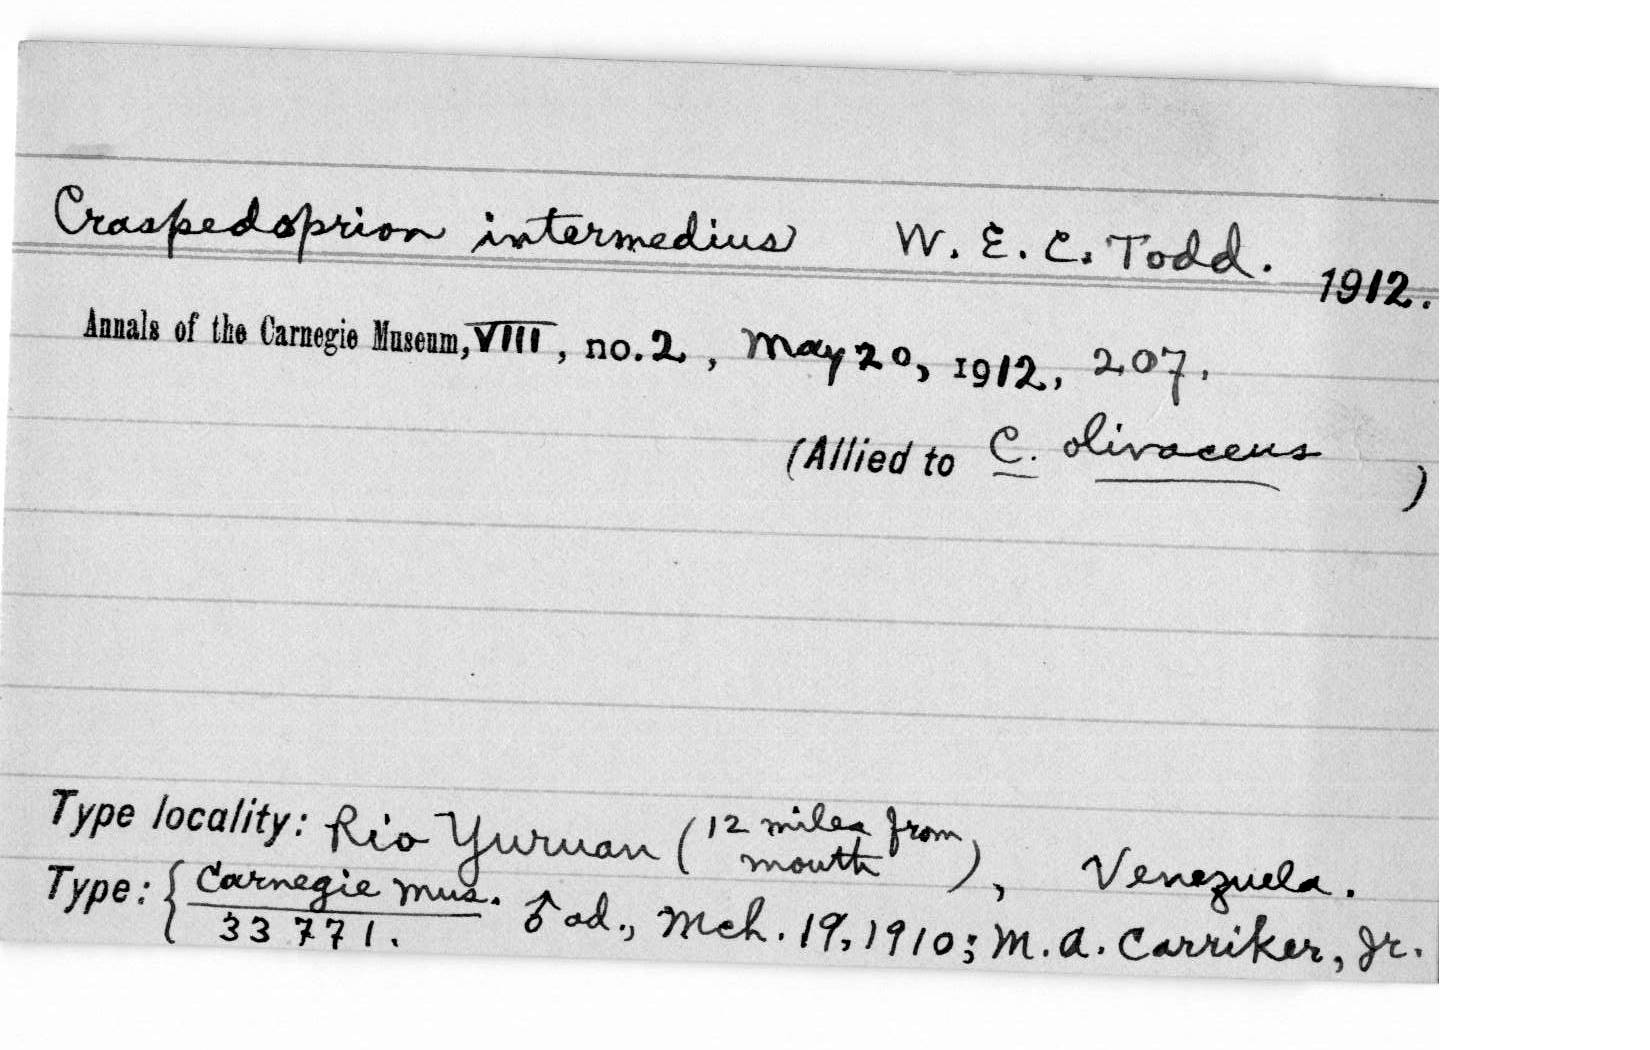 Craspedoprion intermedius W. E. C. Todd. 1912.
Annals of the Carnegie Museum, VIII, no. 2, May 20, 1912, 207.
(Allied to C. olivaceus )
Type locality: Rio Yuruan (12 miles from mouth), Venezuela.
Type: { Carnegie Mus. ♂ ad., Mch. 19, 1910; M. A. Carriker, Jr.
33771.